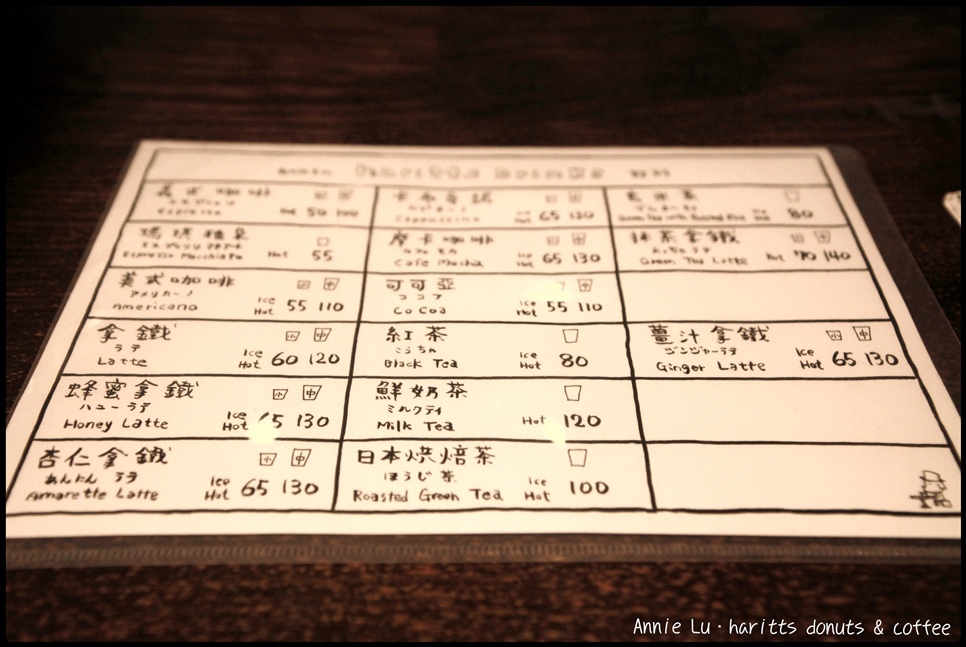 haritts drinks
義式咖啡 小 中
エスプレッソ
Espresso Hot 50 100
瑪琪雅朵
Espresso Macchiato Hot 55
美式咖啡 小 中
アメリカーノ
Americano Ice Hot 55 110
拿鐵 小 中
ラテ
Latte Ice Hot 60 120
蜂蜜拿鐵 小 中
ハニーラテ
Honey Latte Ice Hot 130
杏仁拿鐵 小 中
あんにん ラテ
Amarette Latte Ice Hot 65 130
卡布奇諾
Cappuccino 65 130
摩卡咖啡 小 中
Cafe Mocha Ice Hot 65 130
可可亞 中
ココア
CoCoa Ice Hot 55 110
紅茶
こうちゃ
Black Tea Ice Hot 80
鮮奶茶
ミルクティ
Milk Tea Hot 120
日本烘焙茶
ほうじ茶
Roasted Green Tea Ice Hot 100
玄米茶
Green Tea with Roasted Rice 80
抹茶拿鐵 小 中
Green Tea Latte Hot 70 140
薑汁拿鐵 小 中
ジンジャーラテ
Ginger Latte Ice Hot 65 130
Annie Lu · haritts donuts & coffee